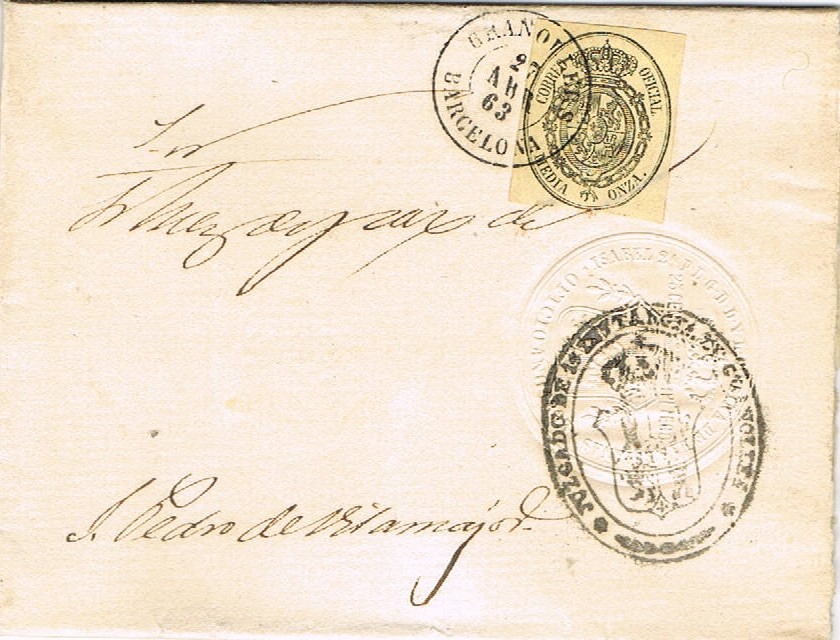 GRANOLLERS
2
AB
63
BARCELONA
CORREO OFICIAL
MEDIA ONZA.
Sr
Juez de paz de
ISABEL 2ª P.L.G.D.
JUZGADO DE 1ª INSTANCIA DE GRANOLLERS
S. Pedro de Vilamajor